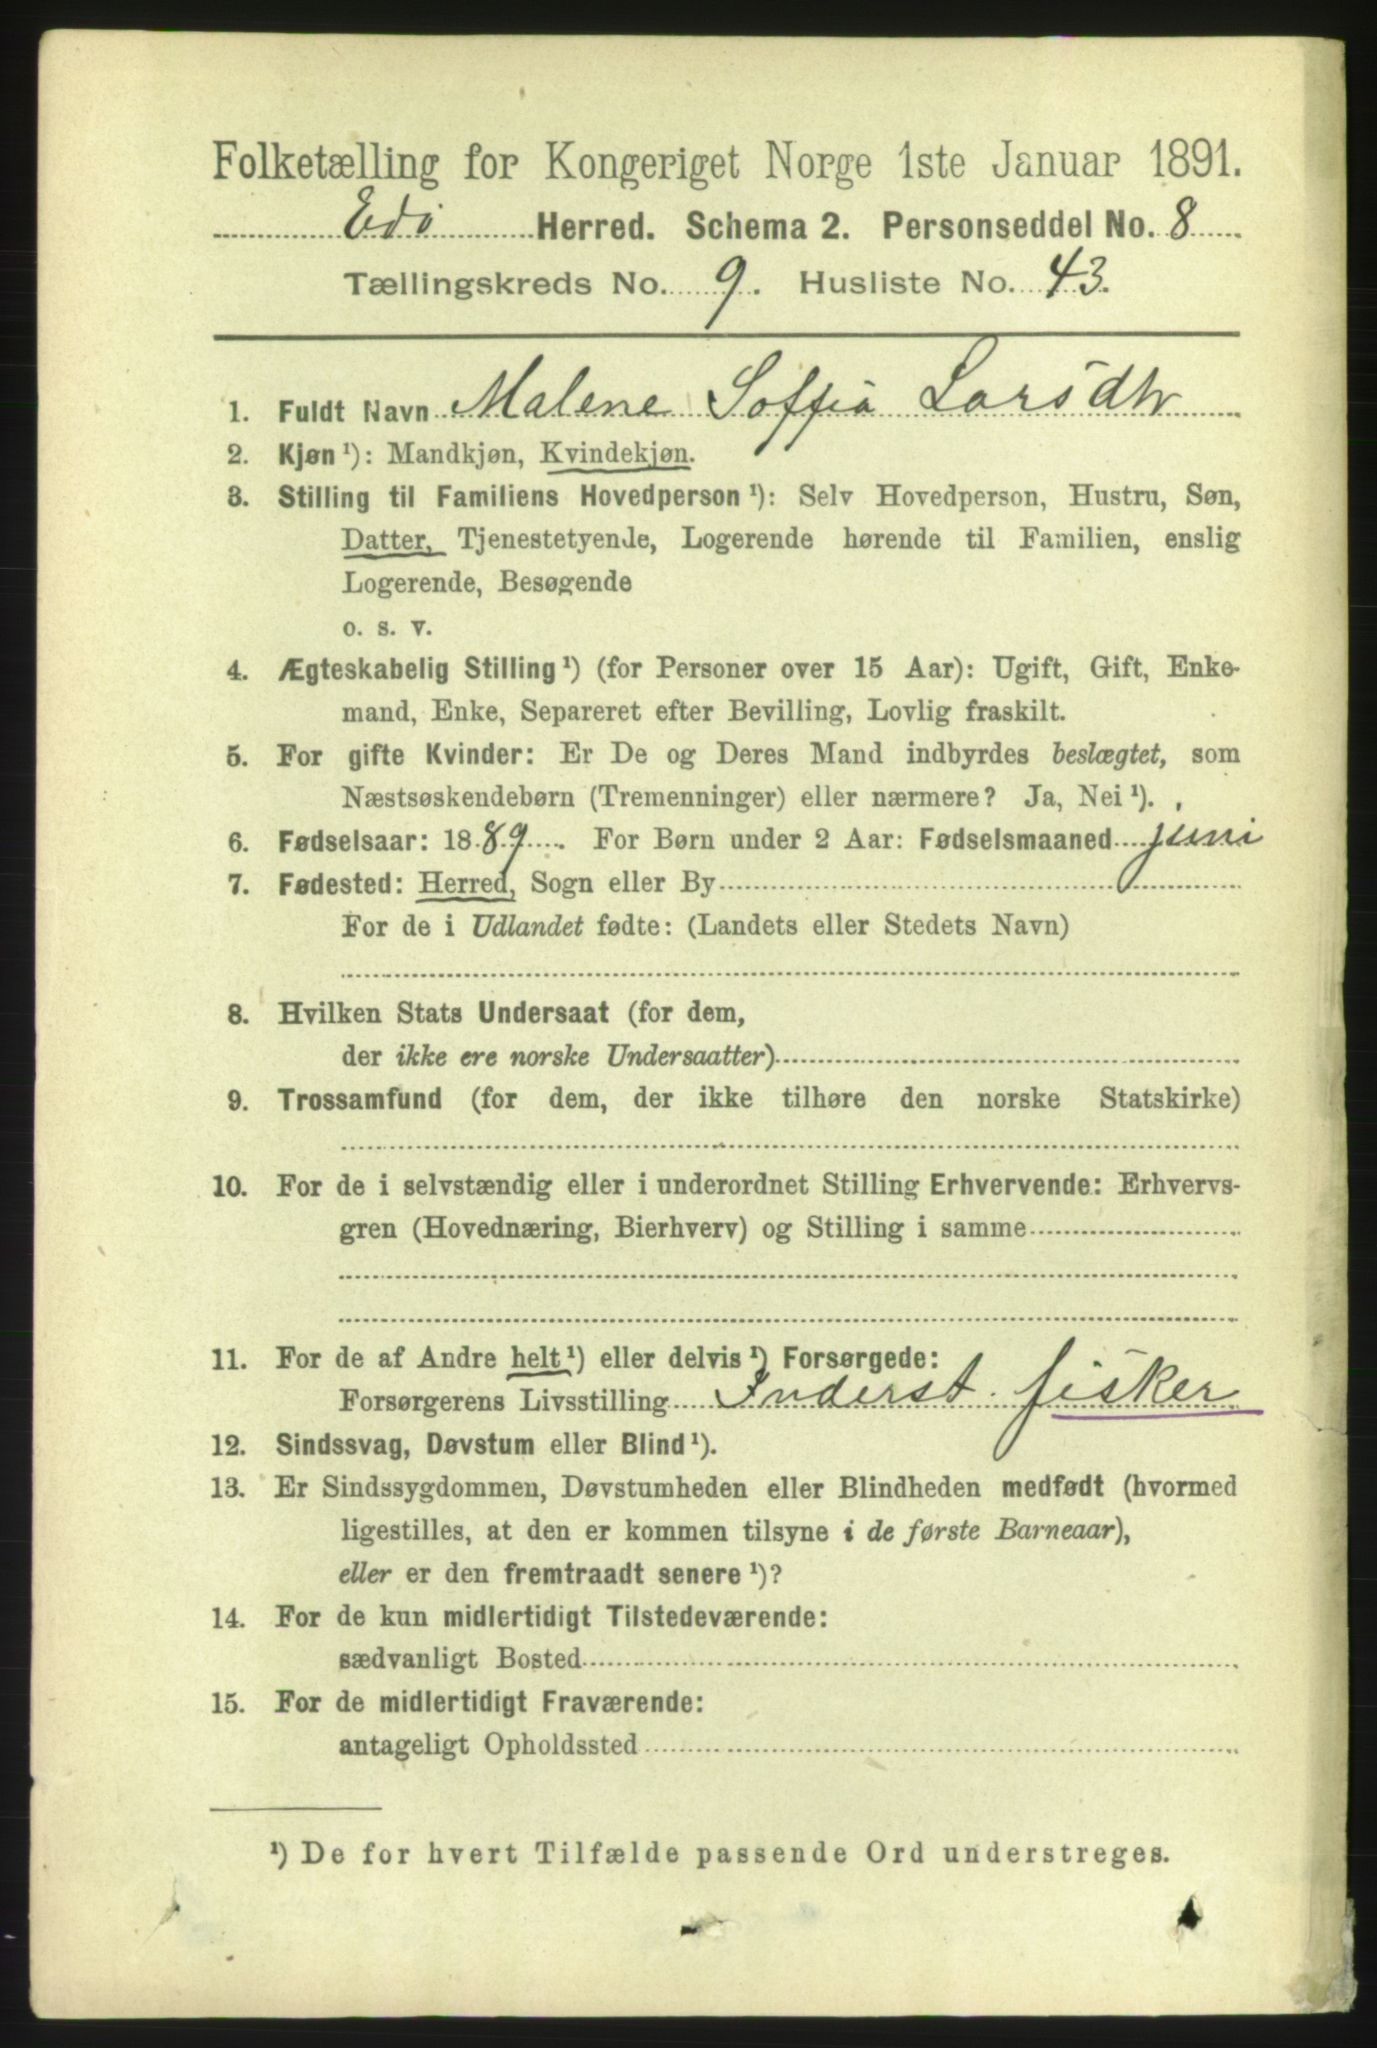 Folketælling for Kongeriget Norge 1ste Januar 1891.
Edö Herred. Schema 2. Personseddel No. 8
Tællingskreds No. 9. Husliste No. 43.
1. Fuldt Navn Malene Soffia Larsdtr
2. Kjøn ¹): Mandkjøn, Kvindekjøn.
3. Stilling til Familiens Hovedperson ¹): Selv Hovedperson, Hustru, Søn,
Datter, Tjenestetyende, Logerende hørende til Familien, enslig
Logerende, Besøgende
o. s. v.
4. Ægteskabelig Stilling ¹) (for Personer over 15 Aar): Ugift, Gift, Enke-
mand, Enke, Separeret efter Bevilling, Lovlig fraskilt.
5. For gifte Kvinder: Er De og Deres Mand indbyrdes beslægtet, som
Næstsøskendebørn (Tremenninger) eller nærmere? Ja, Nei ¹).
6. Fødselsaar: 1889. For Børn under 2 Aar: Fødselsmaaned juni
7. Fødested: Herred, Sogn eller By
For de i Udlandet fødte: (Landets eller Stedets Navn)
8. Hvilken Stats Undersaat (for dem,
der ikke ere norske Undersaatter)
9. Trossamfund (for dem, der ikke tilhøre den norske Statskirke)
10. For de i selvstændig eller i underordnet Stilling Erhvervende: Erhvervs-
gren (Hovednæring, Bierhverv) og Stilling i samme
11. For de af Andre helt ¹) eller delvis ¹) Forsørgede:
Forsørgerens Livsstilling Inderst. fisker
12. Sindssvag, Døvstum eller Blind ¹).
13. Er Sindssygdommen, Døvstumheden eller Blindheden medfødt (hvormed
ligestilles, at den er kommen tilsyne i de første Barneaar),
eller er den fremtraadt senere ¹)?
14. For de kun midlertidigt Tilstedeværende:
sædvanligt Bosted
15. For de midlertidigt Fraværende:
antageligt Opholdssted
¹) De for hvert Tilfælde passende Ord understreges.